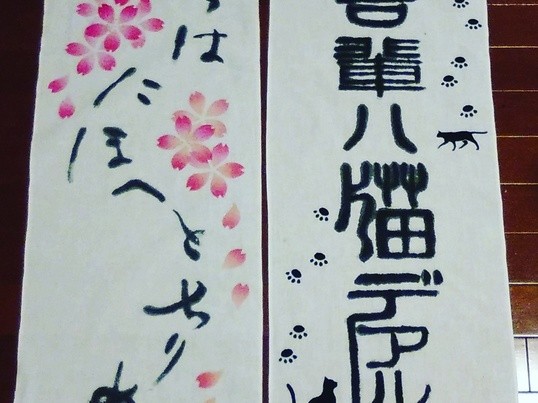 吾輩ハ猫デアル
ろは
にほへ
とちり